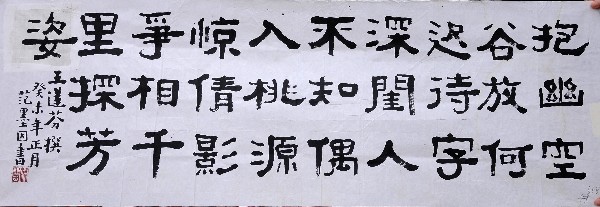 抱幽空
谷放何
迟待字
深閨人
不知偶
入桃源
惊倩影
爭相千
里探芳
姿
王蓮芬撰
癸未年正月
范書